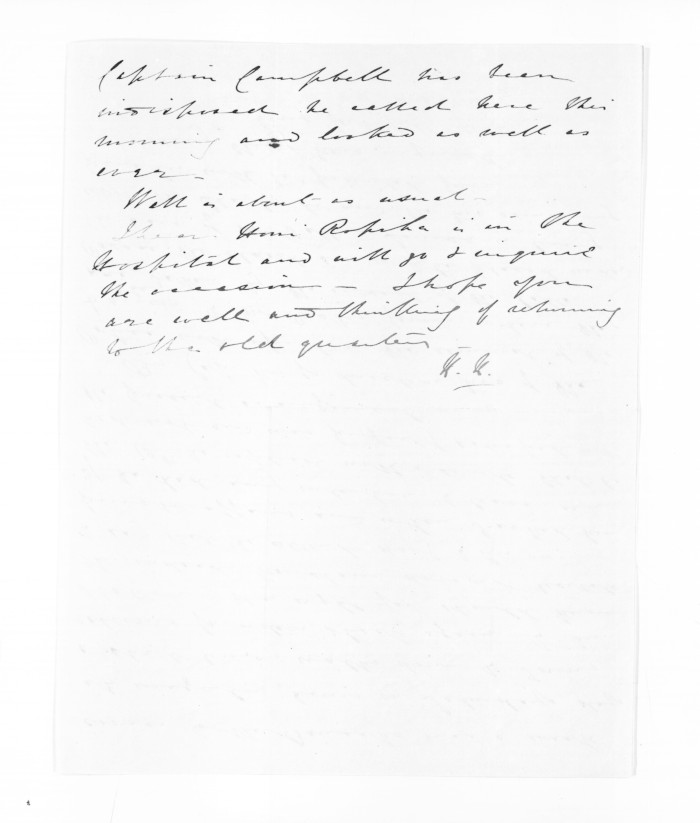 Captain Campbell has been
indisposed he called here this
morning and looked as well as
ever –
Watt is about as usual –
I hear Honi Ropiha is in the
Hospital and will go & inquire
the occasion – I hope you
are well and thinking of returning
to the old quarters –